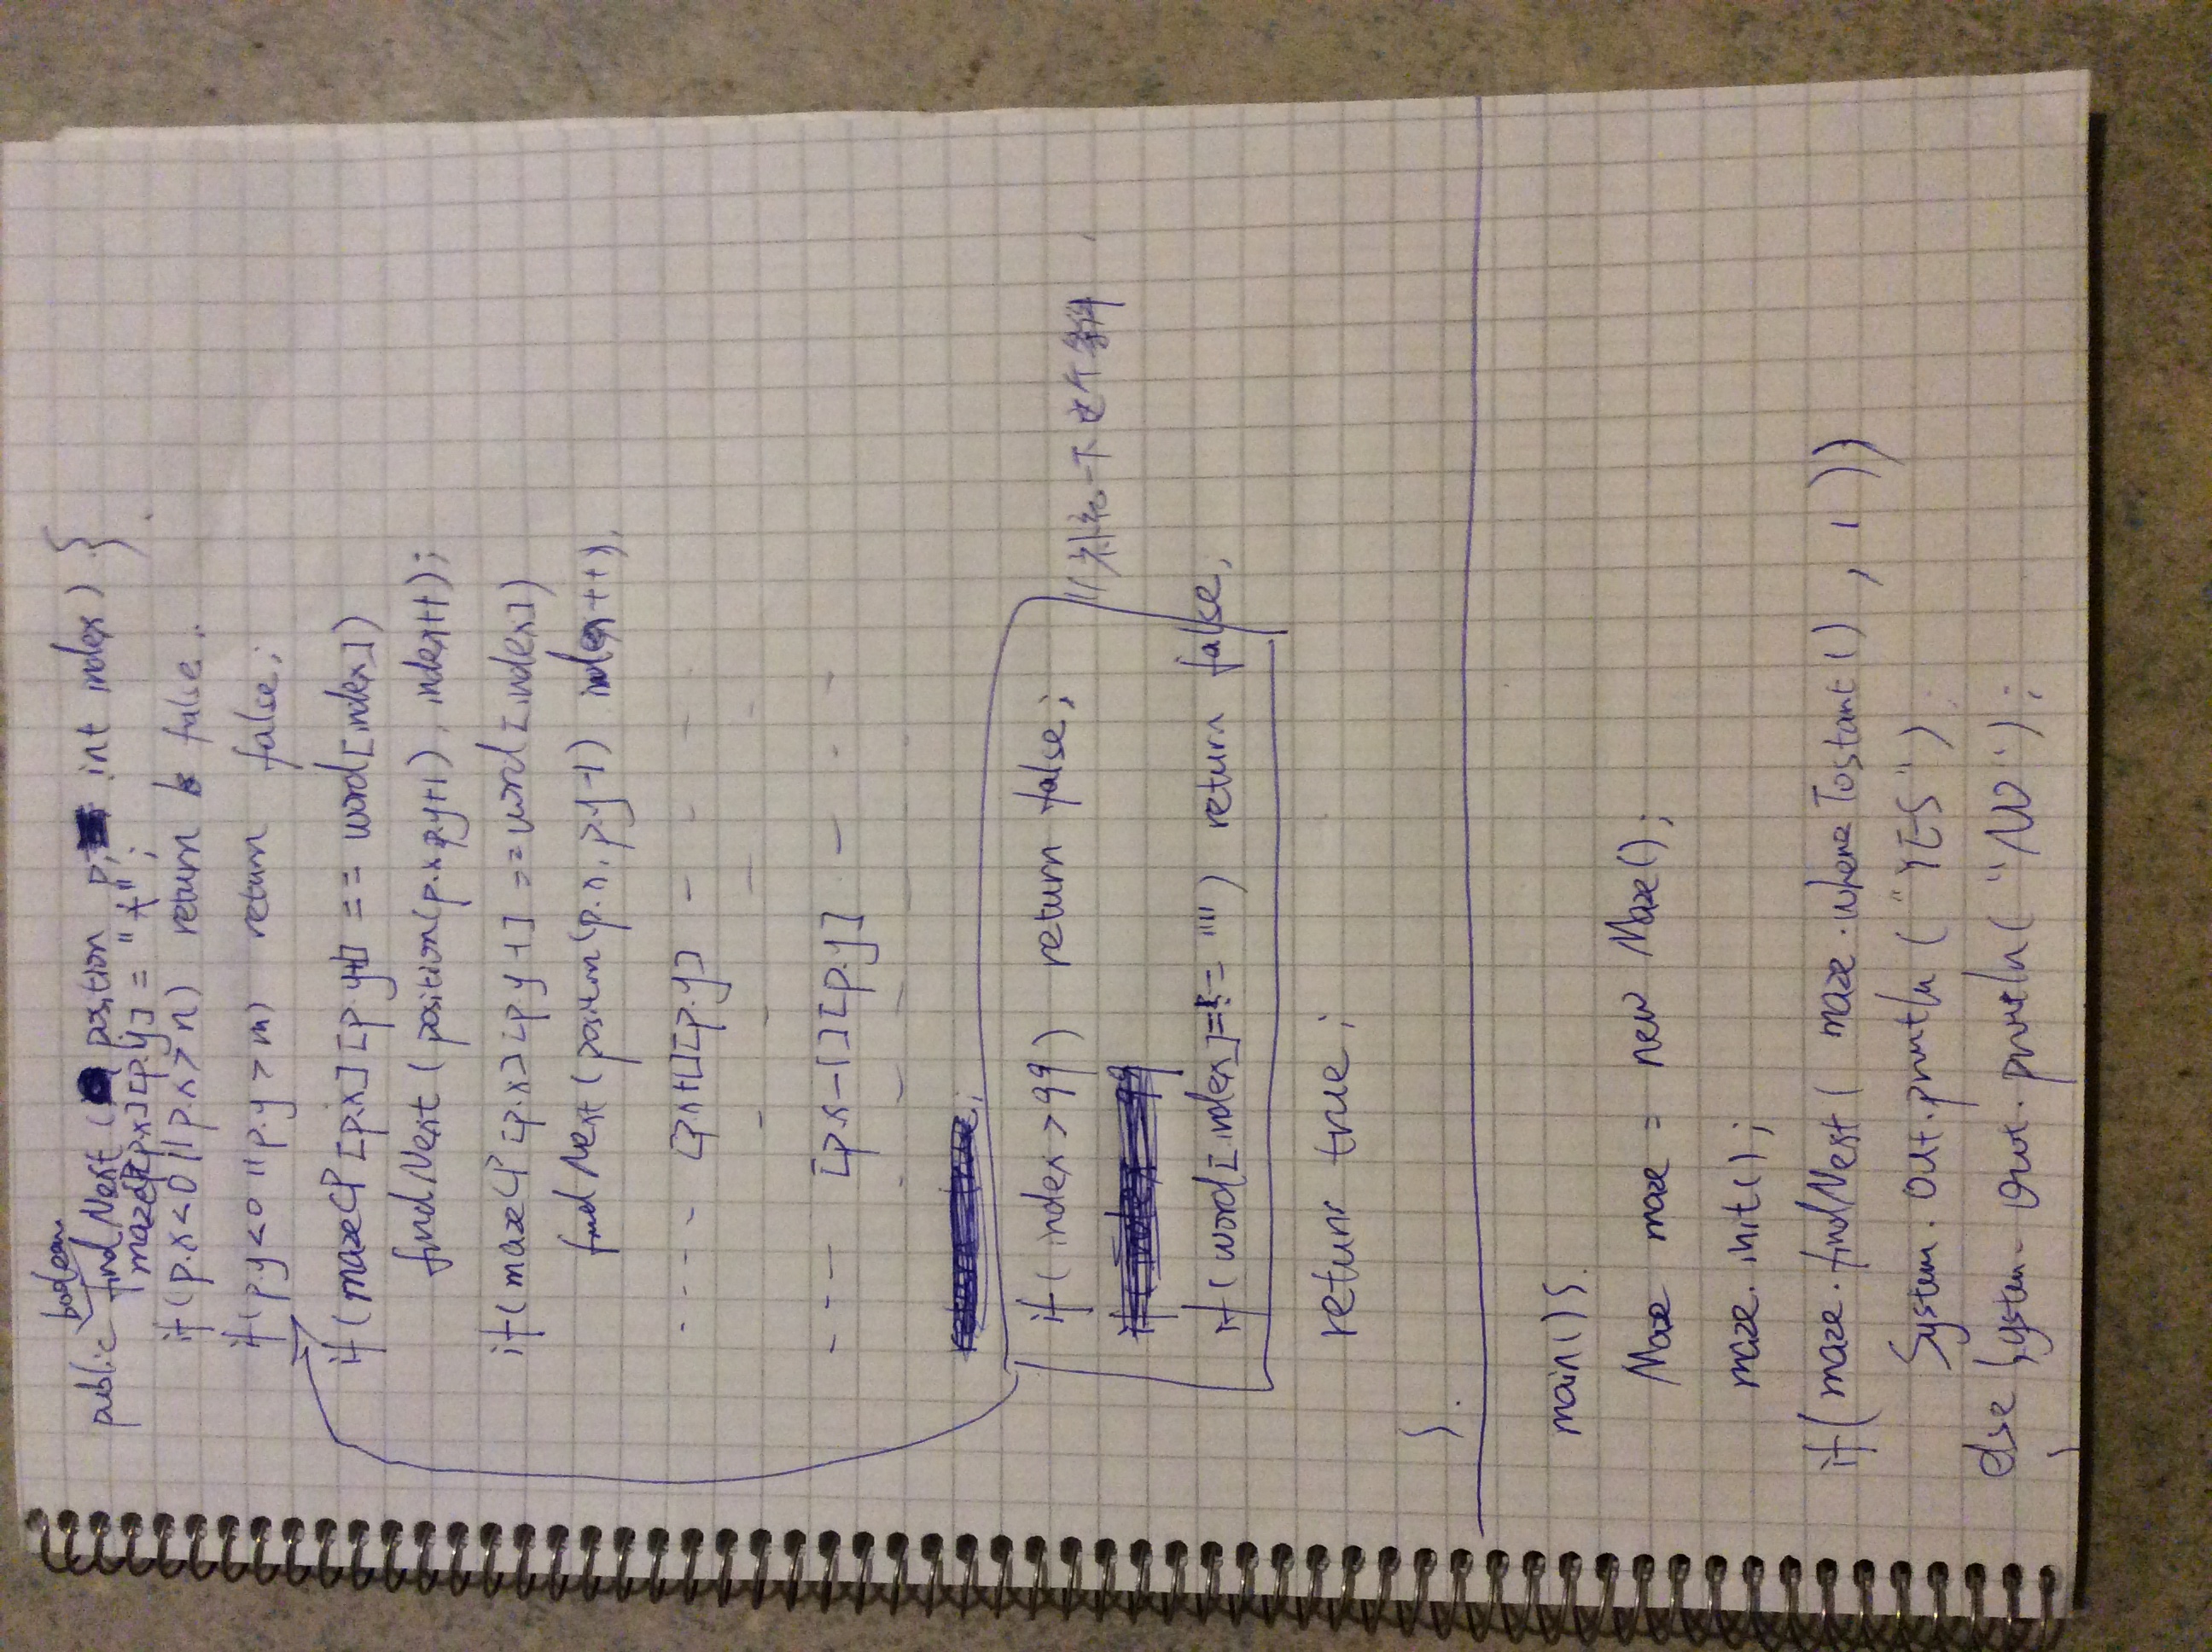 boolean
public findNext ( position p, int index) {
mazeCP[p.x][p.y] = "*";
if(p.x<0 || p.x>n) return false.
if(p.y<0 || p.y>m) return false;
if(mazeCP[p.x][p.y+1] == word[index])
findNext(position(p.x,p.y+1), index++);
if(mazeCP[p.x][p.y-1] == word[index])
findNext(position(p.x, p.y-1) index++),
---- [p.x+1][p.y] - - -
- - - -
--- [p.x-1][p.y] - - -
- - - - - -
return true;
if(index>99) return false; //补充一下这个条件
if(index 99
if(word[index] == "") return false,
return true;
}.
main(){.
Maze maze = new Maze();
maze.init();
if(maze.findNext( maze.whereTostart() , 1 ))
System.out.println("YES")
else System.out.println("NO");
}